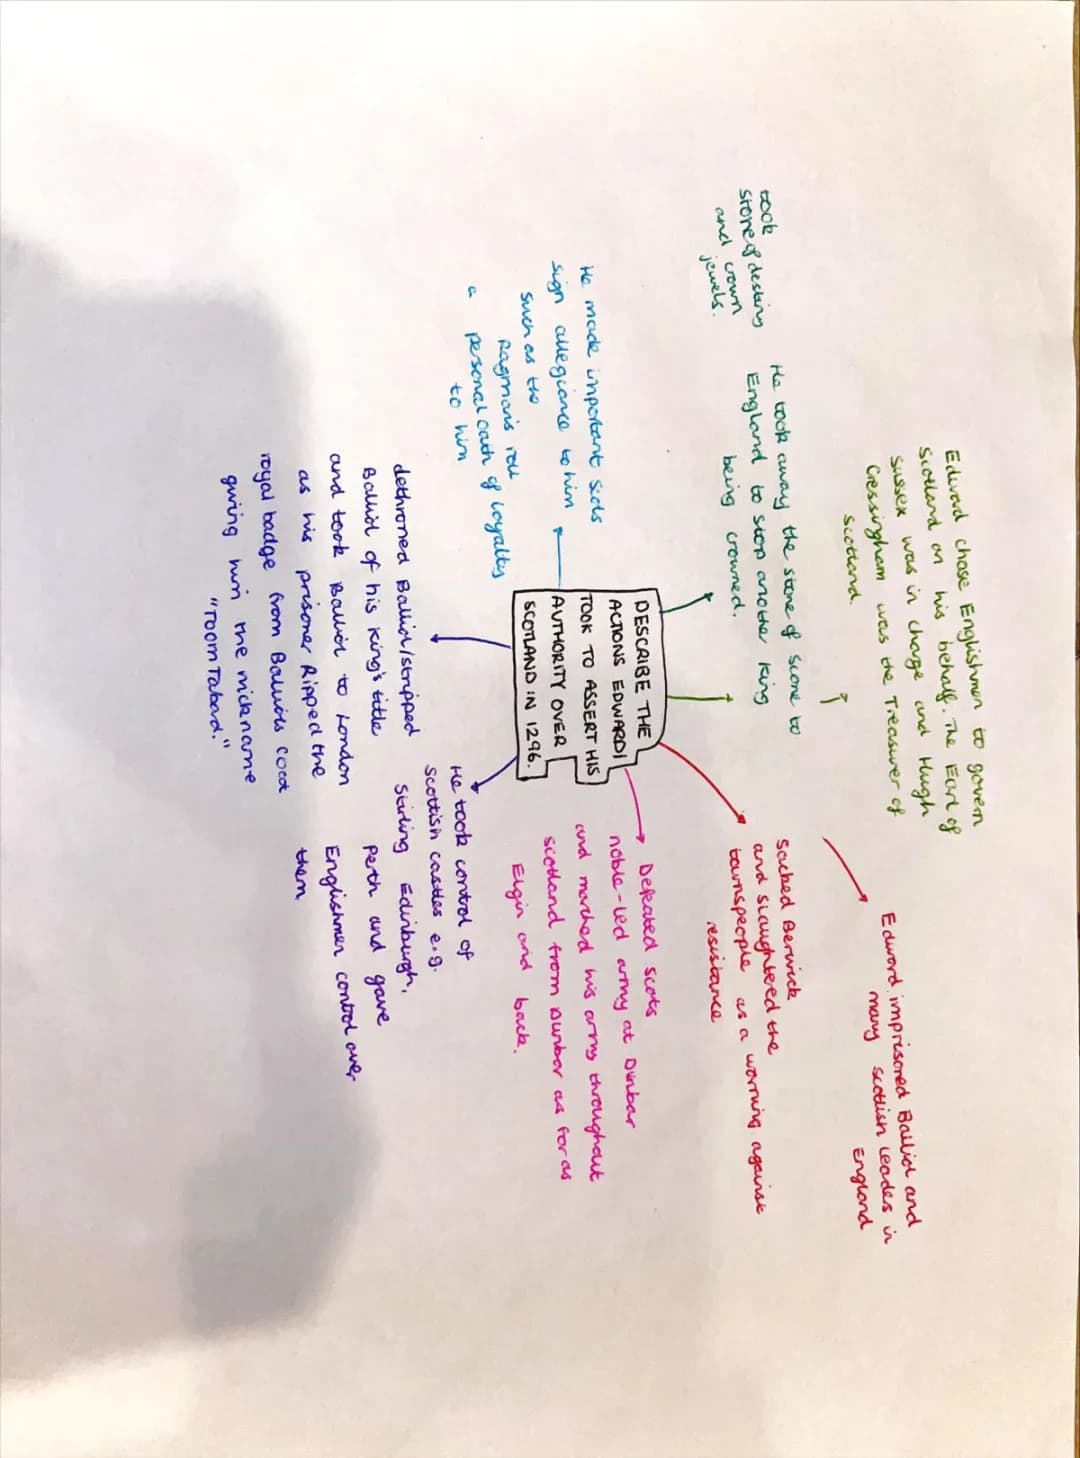 DESCRIBE THE
ACTIONS EDWARD I
TOOK TO ASSERT HIS
AUTHORITY OVER
SCOTLAND IN 1296.
Edward chose Englishmen to govern
Scotland on his behalf. The Earl of
Sussex was in charge and Hugh
Cressingham was the Treasurer of
Scotland.
Edward imprisoned Balliol and
many Scottish leaders in
England
took
stone of destiny
and crown
jewels.
He took away the stone of scone to
England to stop another king
being crowned.
Sacked Berwick
and slaughtered the
townspeople as a warning against
resistance
Defeated Scots
noble-led army at Dunbar
and marched his army throughout
Scotland from Dunbar as far as
Elgin and back.
He made important Scots
sign allegiance to him
such as the
Ragman's roll
a personal oath of loyalty
to him
He took control of
Scottish castles e.g.
Stirling Edinburgh,
Perth and gave
Englishmen control over
them
dethroned Balliol/stripped
Balliol of his king's title
and took Balliol to London
as his prisoner Ripped the
royal badge from Balliols coat
giving him the nickname
"Toom Tabard."